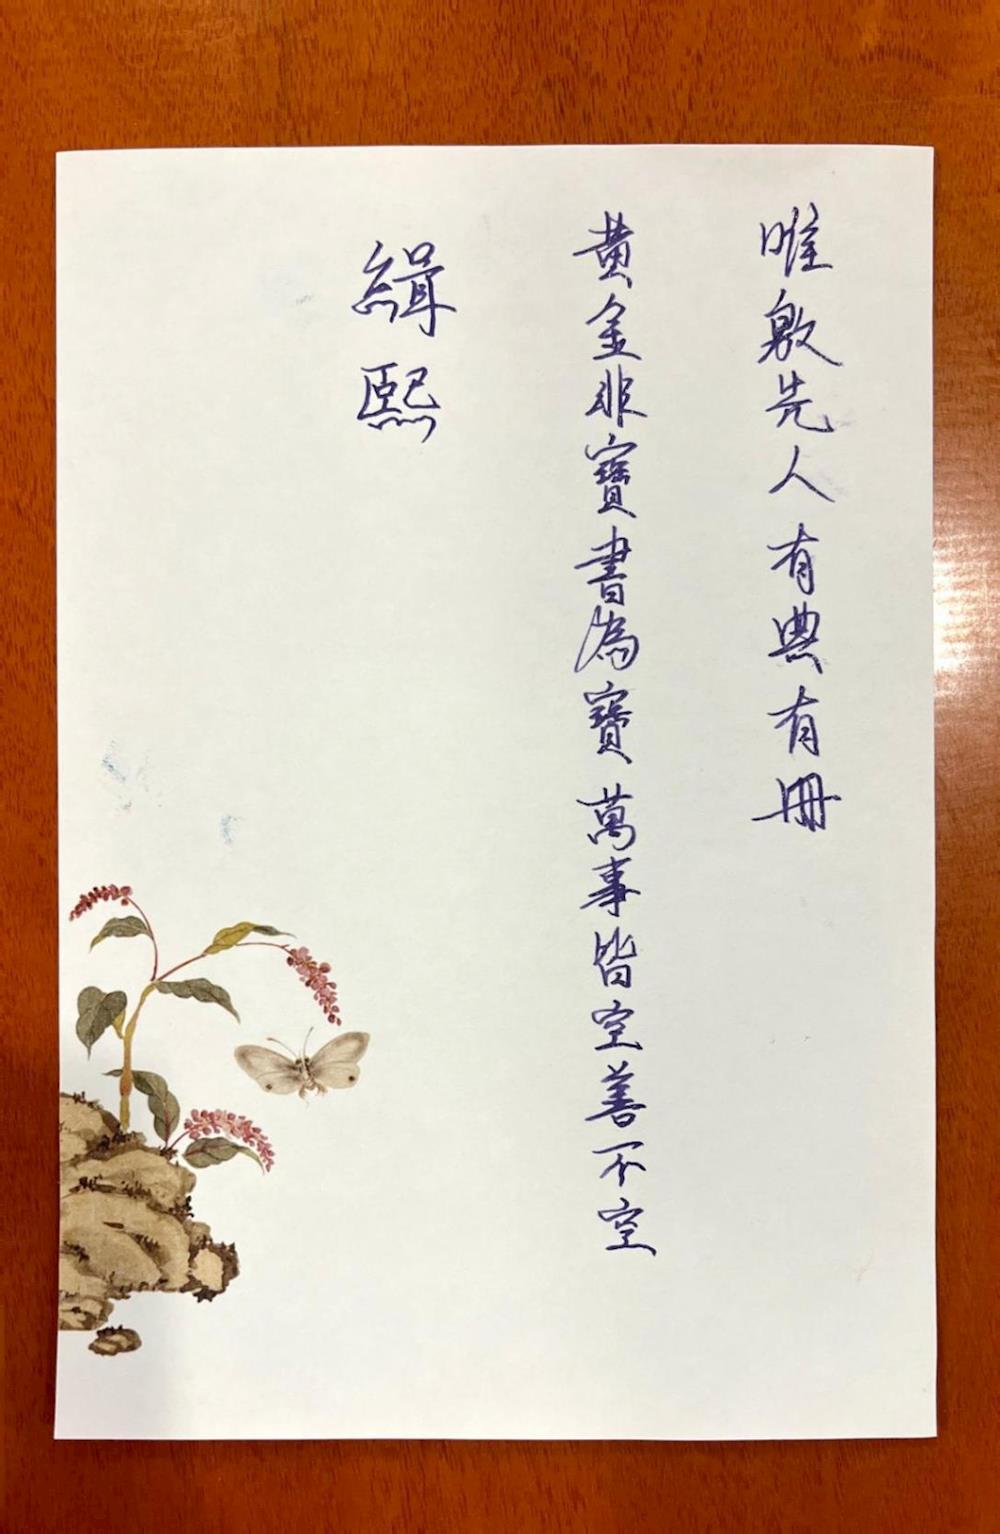 唯殷先人有典有冊
黃金非寶書為寶萬事皆空善不空
緝熙